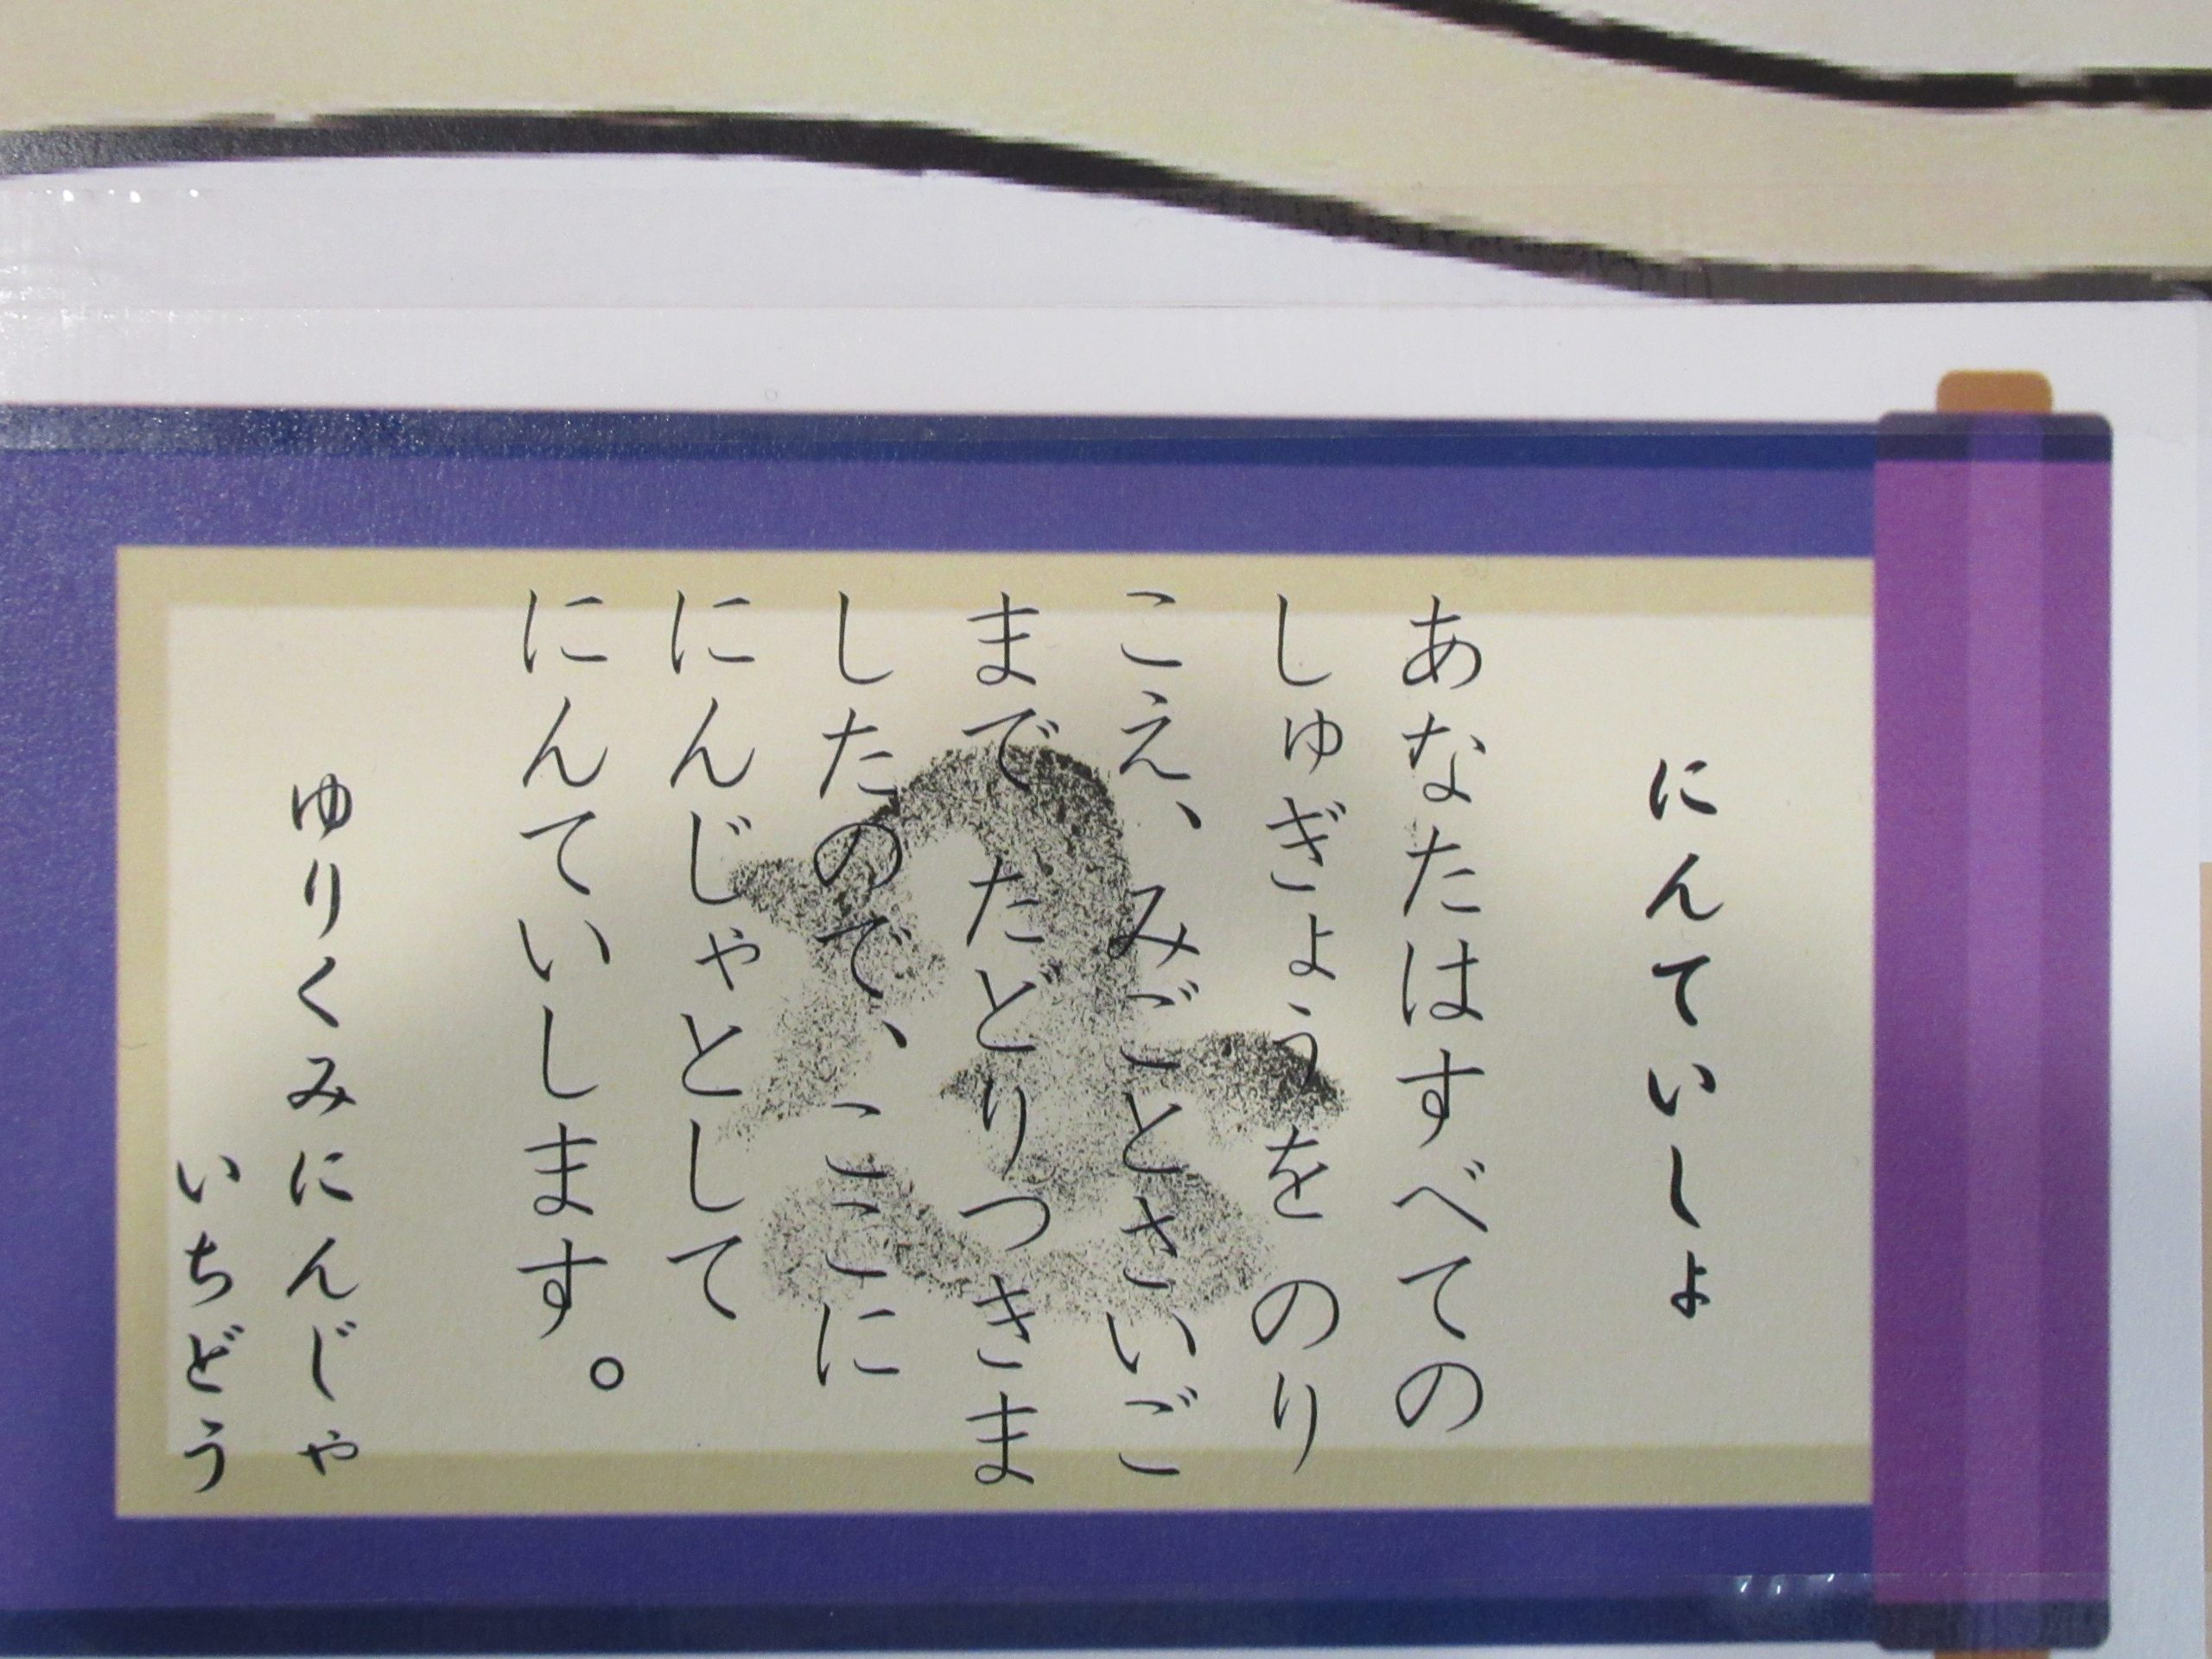 にんていしょ
あなたはすべての
しゅぎょうを のり
こえ、みごとさいご
まで たどりつきま
したので、ここに
にんじゃとして
にんていします。
ゆりくみにんじゃ
いちどう